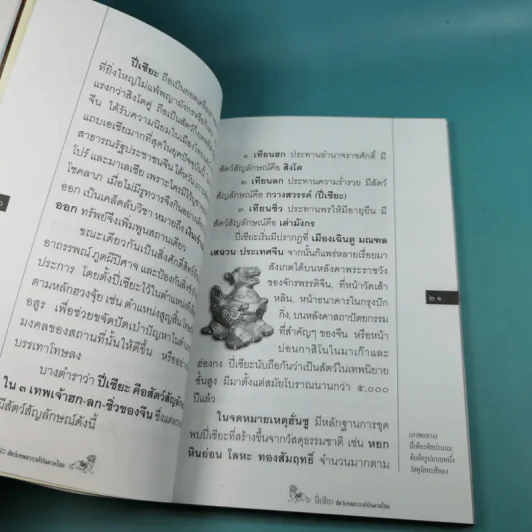 ปี่เซียะ ถือเป็นยอดเครื่อง
ที่ยิ่งใหญ่ไม่แพ้พญามังกรหรือ
แรงกว่าสิงโตคู่ ถือเป็นสัตว์
จีน ได้รับความนิยมในเมือง
แถบเอเชียมากที่สุดในยุคปัจจุบัน
สาธารณรัฐประชาชนจีน ไต้หวัน
โปร์ และมาเลเซีย เพราะใครมีไว้บูชา
โชคลาภ เมื่อไม่มีรูทวารจึงกินอย่าง
ออก เป็นเคล็ดลับวิชา หมายถึง เงิน
ออก ทรัพย์จึงเพิ่มพูนสถานเดียว
ขณะเดียวกันเป็นสิ่งศักดิ์สิทธิ์
อาถรรพณ์ ภูตผีปีศาจ และป้องกันสิ่ง
ประการ โดยตั้งปี่เซียะไว้ในตำแหน่ง
ตามหลักฮวงจุ้ย เช่น ตำแหน่งสูญสิ้น
อสูร เพื่อช่วยขจัดปัดเป่าปัญหาใน
มงคลของสถานที่นั้นให้ดีขึ้น หรือ
บรรเทาโทษลง
บางตำราว่า ปี่เซียะ คือสัตว์
ใน ๓ เทพเจ้าฮก-ลก-ซิ่วของจีน ซึ่ง
มีสัตว์สัญลักษณ์ดังนี้
๑. เทียนฮก ประทานอำนาจราชศักดิ์ มี
สัตว์สัญลักษณ์คือ สิงโต
๒. เทียนลก ประทานความร่ำรวย มีสัตว์
สัญลักษณ์คือ กวางสวรรค์ (ปี่เซียะ)
๓. เทียนซิ่ว ประทานพรให้มีอายุยืน มี
สัตว์สัญลักษณ์คือ เต่ามังกร
ปี่เซียะเริ่มมีปรากฏที่ เมืองเฉินตู มณฑล
เสฉวน ประเทศจีน จากนั้นก็แพร่หลายเรื่อยมา
สังเกตได้บนหลังคาพระราชวัง
ของจักรพรรดิจีน, ที่หน้าวัดเส้า
หลิน, หน้าธนาคารในกรุงปัก
กิ่ง, บนหลังคาสถาปัตยกรรม
ที่สำคัญๆ ของจีน หรือหน้า
บ่อนกาสิโนในมาเก๊าและ
ฮ่องกง ปี่เซียะนับถือกันว่าเป็นสัตว์ในเทพนิยาย
ชั้นสูง มีมาตั้งแต่สมัยโบราณนานกว่า ๕,๐๐๐
ปีแล้ว
ในจดหมายเหตุฮั่นซู มีหลักฐานการขุด
พบปี่เซียะที่สร้างขึ้นจากวัสดุธรรมชาติ เช่น หยก
หินอ่อน โลหะ ทองสัมฤทธิ์ จำนวนมากตาม
๒๑
(ภาพกลาง)
ปี่เซียะศิลปะแบบ
จีนอีกรูปแบบหนึ่ง
วัสดุโลหะสีทอง
ปี่เซียะ สัตว์เทพสวรรค์บันดาลโชค